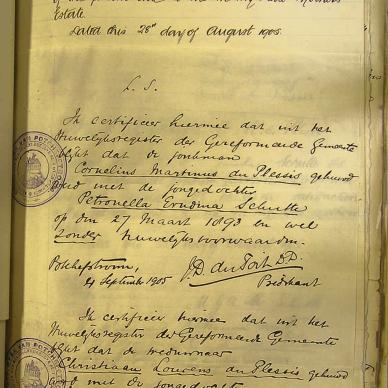 Estate.
Dated this 28th day of August 1905.
L. S.
Ik certificeer hiermee dat uit het
Huwelijksregister der Gereformeerde Gemeente
blijkt dat de jonkman
Cornelius Martinus du Plessis gehuwd
werd met de jongedochter
Petronella Erudina Schutte
op den 27 Maart 1893 en wel
zonder huwelijksvoorwaarden.
Potchefstroom,
J.D. du Toit D.P.
4 September 1905
Predikant
Ik certificeer hiermee dat uit het
Huwelijksregister der Gereformeerde Gemeente
blijkt dat de weduwnaar
Christiaan Louwens du Plessis gehuwd
werd met de jongedochter